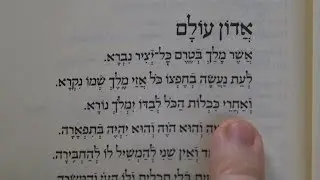 אֲדוֹן עוֹלָם
אֲשֶׁר מָלַךְ בְּטֶרֶם כָּל־יְצִיר נִבְרָא.
לְעֵת נַעֲשָׂה בְחֶפְצוֹ כֹּל אֲזַי מֶלֶךְ שְׁמוֹ נִקְרָא.
וְאַחֲרֵי כִּכְלוֹת הַכֹּל לְבַדּוֹ יִמְלֹךְ נוֹרָא.
וְהוּא הֹוֶה וְהוּא יִהְיֶה בְּתִפְאָרָה.
וְאֵין שֵׁנִי לְהַמְשִׁיל לוֹ לְהַחְבִּירָה.
בְּלִי תַכְלִית